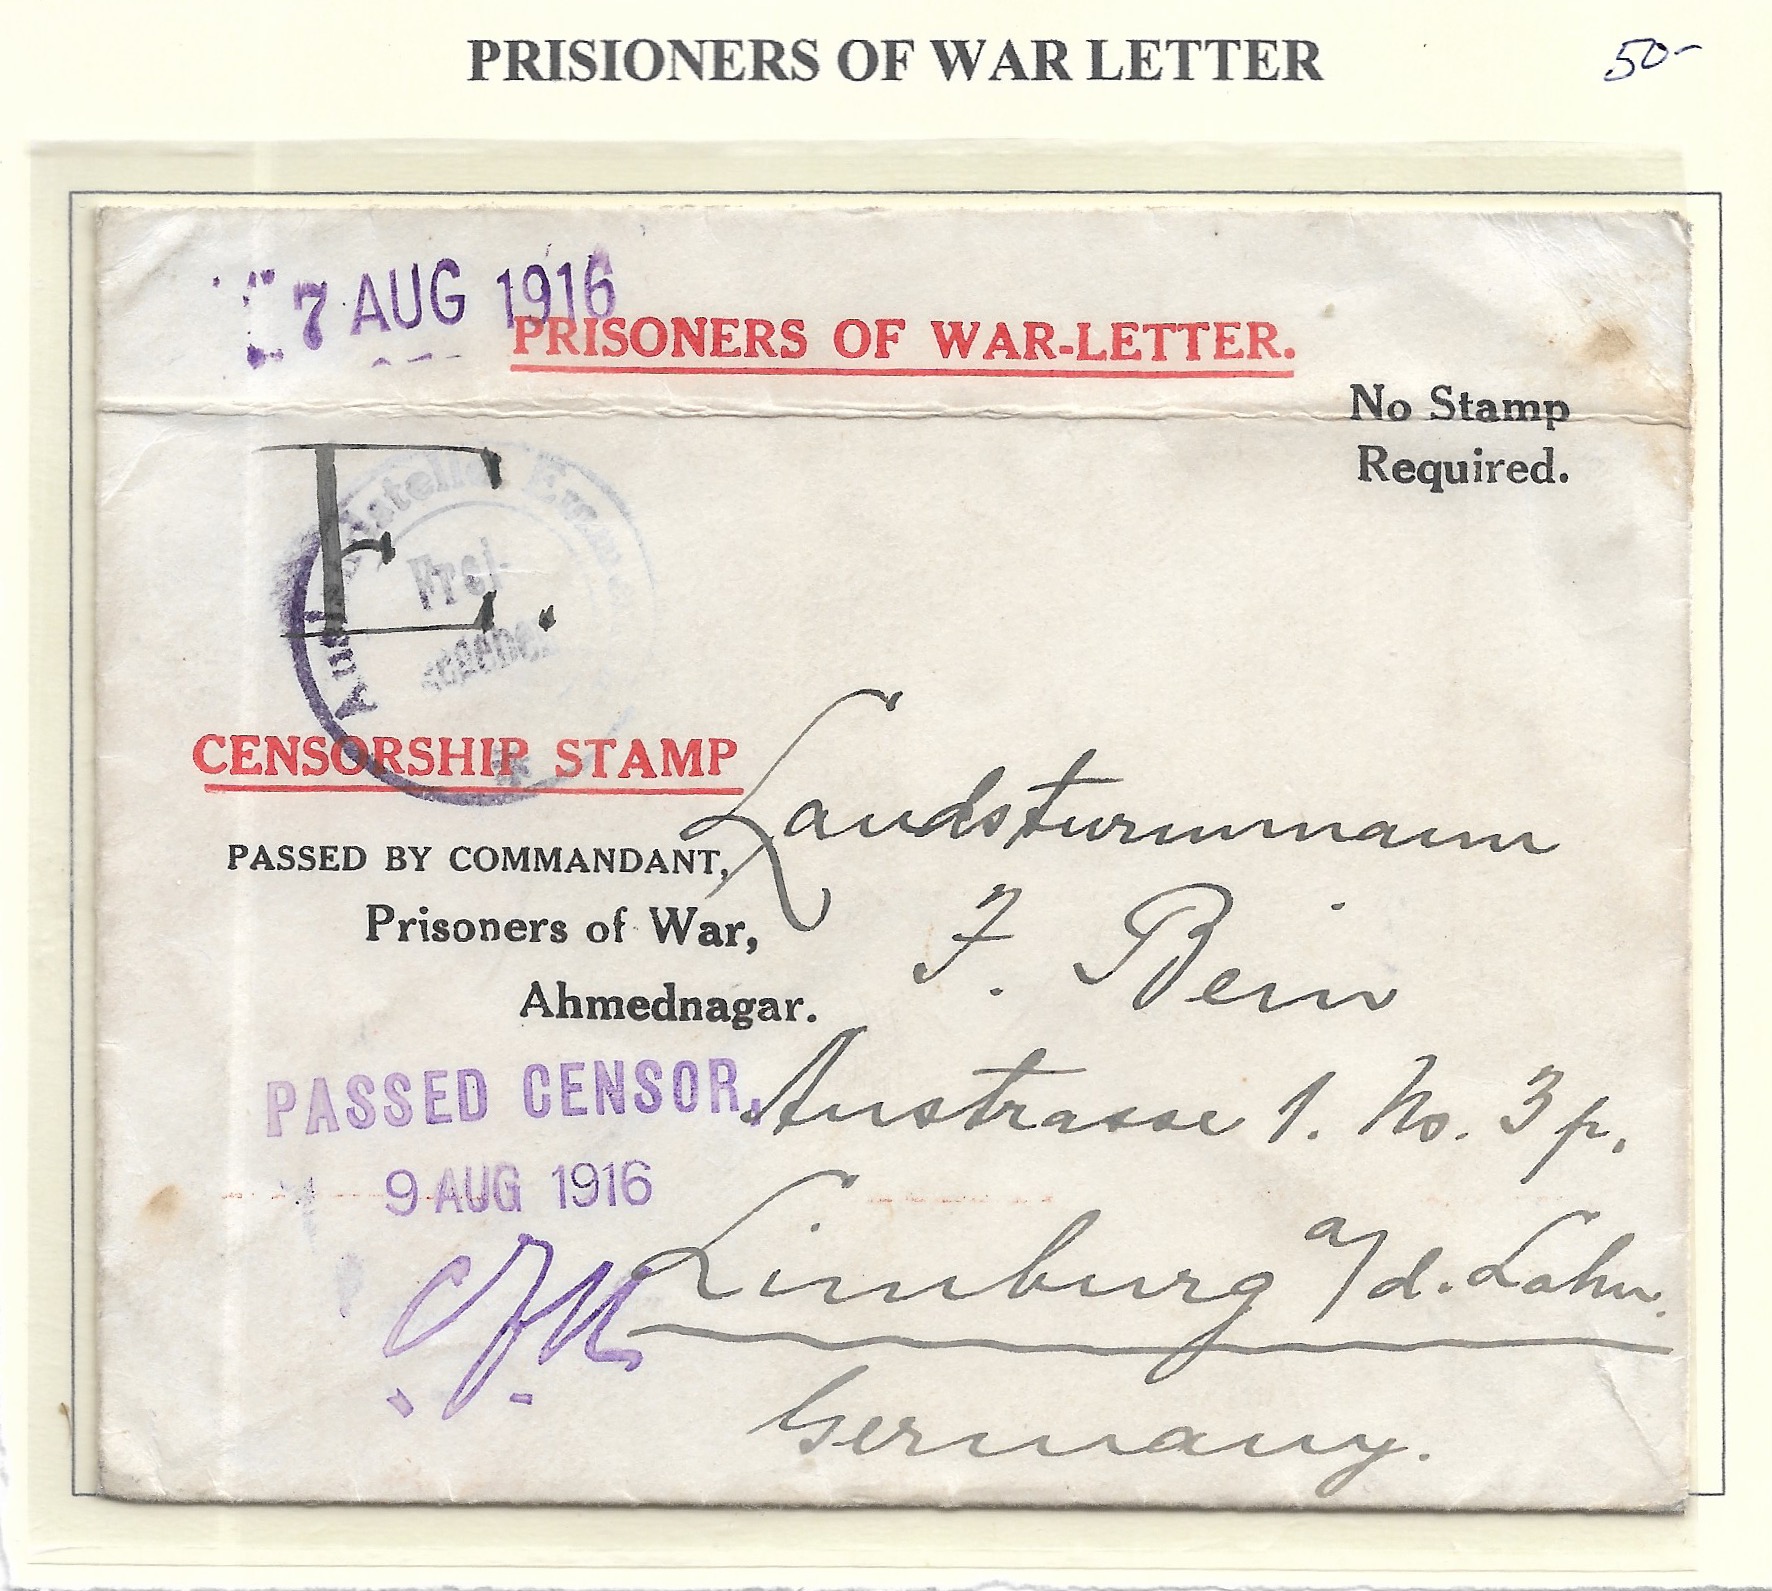 PRISIONERS OF WAR LETTER
50-
7 AUG 1916
PRISONERS OF WAR-LETTER.
No Stamp
Required.
E.
Frei-
CENSORSHIP STAMP
PASSED BY COMMANDANT,
Prisoners of War,
Ahmednagar.
PASSED CENSOR,
9 AUG 1916
Landsturmmann
F. Bein
Austrasse 1. No. 3 p.
Limburg a/d. Lahn.
Germany.